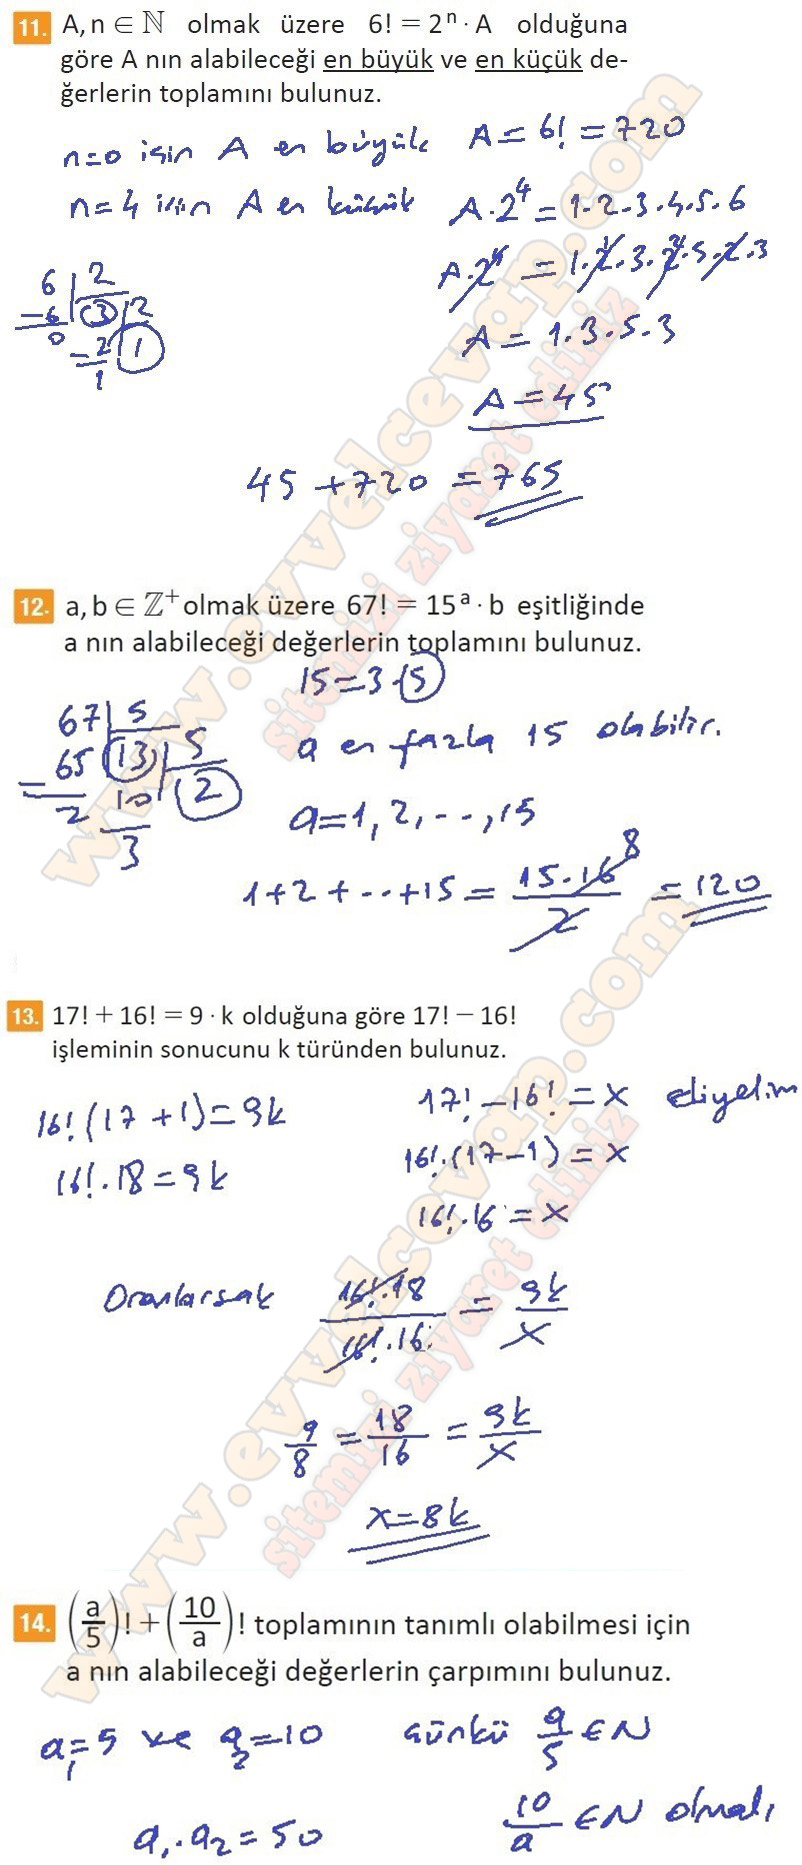 11. A, n ∈ ℕ olmak üzere 6! = 2ⁿ · A olduğuna
göre A nın alabileceği en büyük ve en küçük de-
ğerlerin toplamını bulunuz.
n=0 için A en büyük A = 6! = 720
n=4 için A en küçük A·2⁴ = 1·2·3·4·5·6
A·2⁴ = 1·2·3·2²·5·2·3
6 | 2
-6 3 | 2
0 -2 1
1
A = 1·3·5·3
A = 45
45 + 720 = 765
12. a, b ∈ ℤ⁺ olmak üzere 67! = 15ᵃ · b eşitliğinde
a nın alabileceği değerlerin toplamını bulunuz.
15 = 3·5
67 | 5
65 13 | 5
2 10 2
3
a en fazla 15 olabilir.
a = 1, 2, ..., 15
1+2+...+15 = 15·16/2 = 120
8
13. 17! + 16! = 9 · k olduğuna göre 17! − 16!
işleminin sonucunu k türünden bulunuz.
16!(17+1) = 9k 17! − 16! = x diyelim
16!·18 = 9k 16!·(17−1) = x
16!·16 = x
Oranlarsak 16!·18/16!·16 = 9k/x
9/8 = 18/16 = 9k/x
x = 8k
14. (a/5)! + (10/a)! toplamının tanımlı olabilmesi için
a nın alabileceği değerlerin çarpımını bulunuz.
a₁ = 5 ve a₂ = 10 çünkü a/5 ∈ N
10/a ∈ N olmalı
a₁·a₂ = 50
www.evvelcevap.com
sitemizi ziyaret ediniz
www.evvelcevap.com
sitemizi ziyaret ediniz